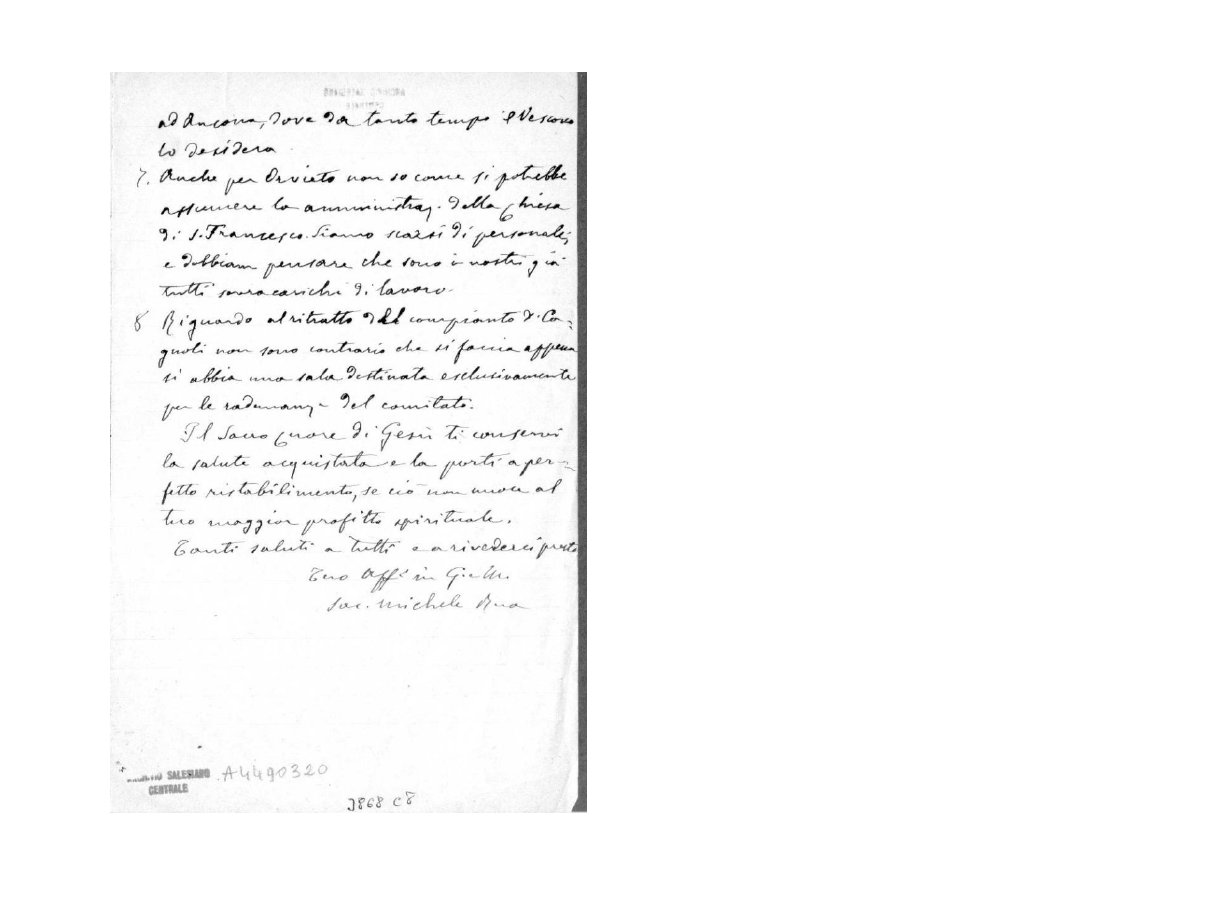 ad Ancona, dove da tanto tempo il Vescovo
lo desidera.
7. Anche per Orvieto non so come si potrebbe
assumere la amministraz. della Chiesa
di S. Francesco. Siamo scarsi di personale,
e dobbiam pensare che sono i nostri già
tutti sovracarichi di lavoro.
8 Riguardo al ritratto del compianto D. Ca=
gnoli non sono contrario che si faccia appena
si abbia una sala destinata esclusivamente
per le radunanze del comitato.
Il Sacro Cuore di Gesù ti conservi
la salute acquistata e la porti a per=
fetto ristabilimento, se ciò non nuoce al
tuo maggior profitto spirituale.
Tanti saluti a tutti e a rivederci presto
Tuo Aff. in G. e M.
Sac. Michele Rua
SALESIANO
CENTRALE
A4490320
3868 C8